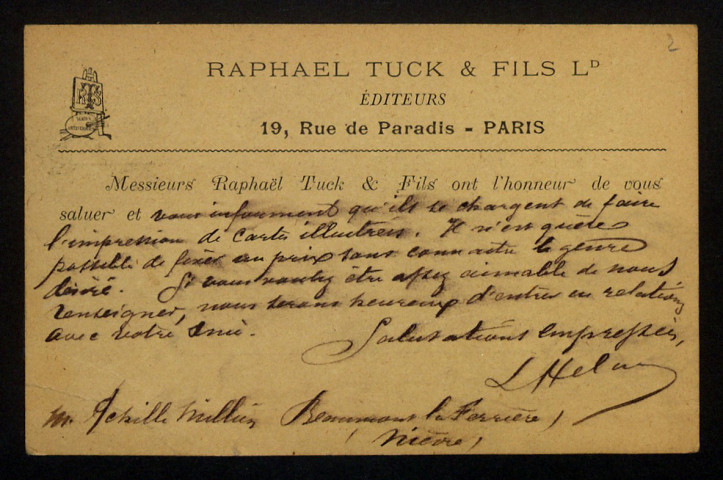 2
RAPHAEL TUCK & FILS Lᴅ
ÉDITEURS
19, Rue de Paradis - PARIS
Messieurs Raphaël Tuck & Fils ont l'honneur de vous
saluer et vous informent qu'ils se chargent de faire
l'impression de cartes illustrées. Il n'est guère
possible de fixer un prix sans connaitre le genre
désiré. Si vous voulez être assez aimable de nous
renseigner, nous serons heureux d'entrer en relations
avec votre ami.
Salutations empressées,
M. Achille Millien Beaumont la Ferrière,
(Nièvre)